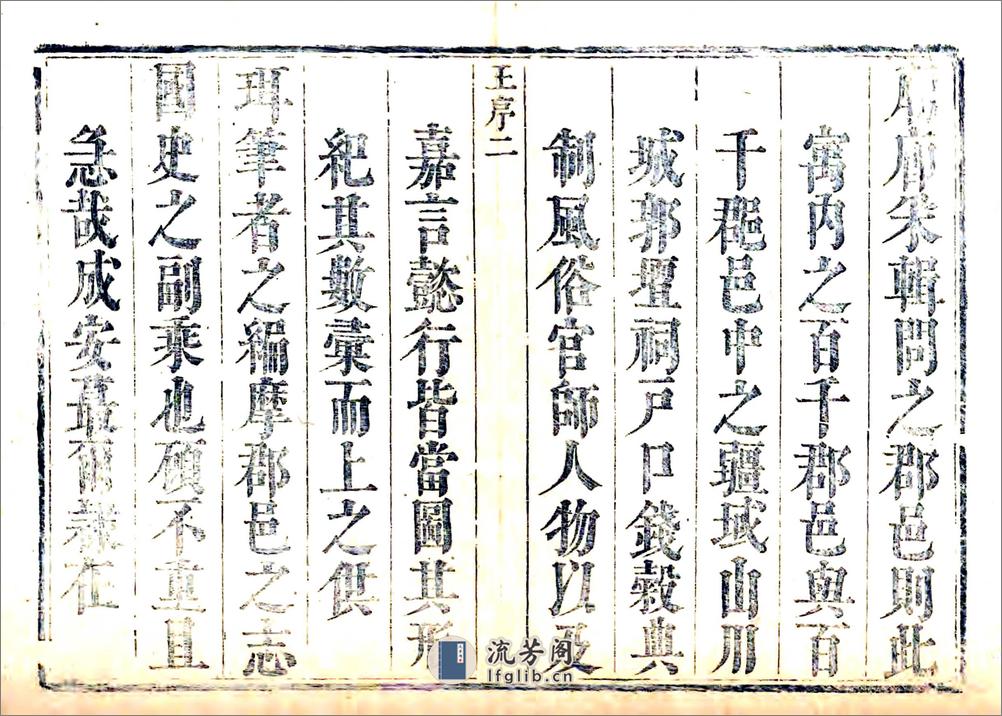 采輯問之郡邑則此
寓内之百千郡邑與百
千郡邑中之疆域山川
城郭壇祠戶口錢穀典
制風俗官師人物以及
王序二
嘉言懿行皆當圖其形
紀其數彙而上之供
珥筆者之編摩郡邑之志
國史之副乘也顧不重且
急哉成安蕞爾在
流芳阁
lfglib.cn